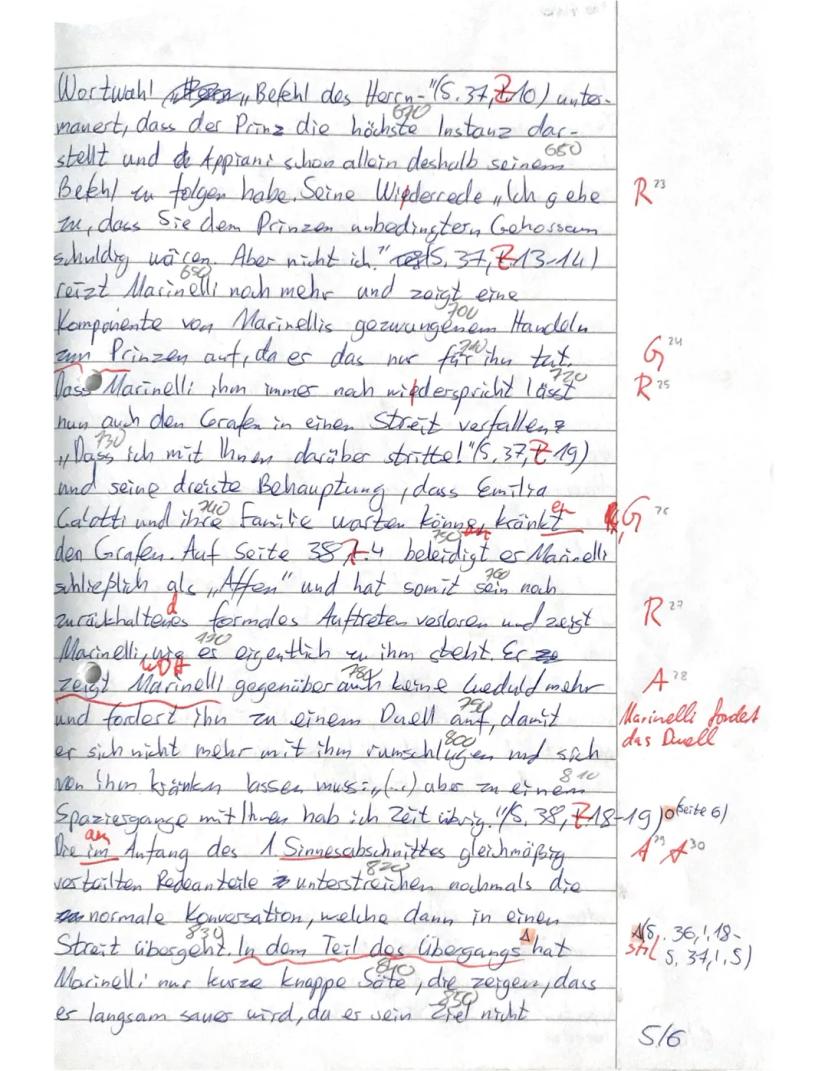 Wortwahl „Befehl des Herrn-"(S.37, Z.10) unter-
mauert, dass der Prinz die höchste Instanz dar-
670
stellt und Appiani schon allein deshalb seinem
680
Befehl zu folgen habe. Seine Wiederrede „Ich gehe
R 23
zu, dass Sie dem Prinzen unbedingtern Gehorsam
schuldig wären. Aber nicht ich." (S. 37, Z.13-14)
690
reizt Marinelli noch mehr und zeigt eine
700
Komponente von Marinellis gezwungenem Handeln
710
zum Prinzen auf, da er das nur für ihn tut.
G 24
720
Dass Marinelli ihm immer noch wiederspricht lässt
R 25
nun auch den Grafen in einen Streit verfallen:
730
„Dass ich mit Ihnen darüber stritte!"(S.37, Z.19)
und seine dreiste Behauptung, dass Emilia
740
Galotti und ihre Familie warten können, kränkt
en
G 26
750
den Grafen. Auf Seite 38 Z.4 beleidigt er Marinelli
760
schließlich als „Affen" und hat somit sein noch
d
zurückhaltenes formales Auftreten verloren und zeigt
R 27
770
Marinelli, wie er eigentlich zu ihm steht. Er
WDH
780
zeigt Marinelli gegenüber auch keine Geduld mehr
A 28
790
und fordert ihn zu einem Duell auf, damit
Marinelli fordet
das Duell
800
er sich nicht mehr mit ihm rumschlagen und sich
810
von ihm kränken lassen muss: „(...) aber zu einem
Spaziergange mit Ihnen hab ich Zeit übrig."(S. 38, Z.18-19) (Seite 6)
am
Die im Anfang des 1. Sinnesabschnittes gleichmäßig
A 29 A 30
820
verteilten Redeanteile unterstreichen nochmals die
normale Konversation, welche dann in einen
830
Streit übergeht. In dem Teil des Übergangs Δ hat
Δ(S. 36, 18-
S. 37, 5)
Stil
840
Marinelli nur kurze knappe Säte, die zeigen, dass
850
er langsam sauer wird, da er sein Ziel nicht
5/6